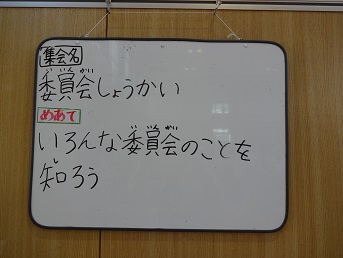 集会名
委員会しょうかい
めあて
いろんな委員会のことを
知ろう